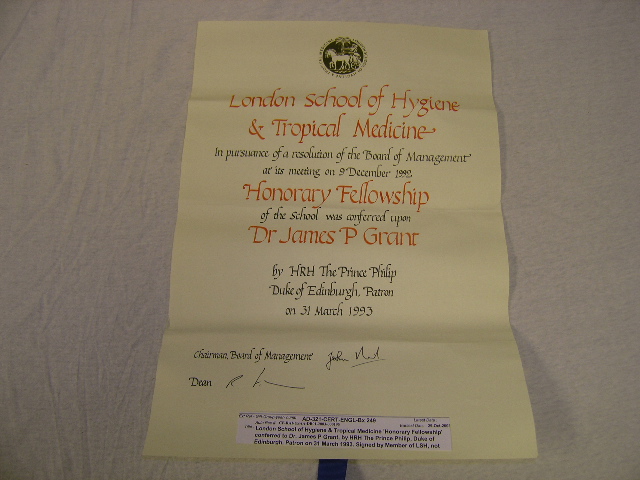 London School of Hygiene
& Tropical Medicine
In pursuance of a resolution of the Board of Management
at its meeting on 9 December 1992
Honorary Fellowship
of the School was conferred upon
Dr James P Grant
by HRH The Prince Philip
Duke of Edinburgh, Patron
on 31 March 1993
Chairman, Board of Management
Dean
AD-321-CERT-ENGL-Bx 249
London School of Hygiene & Tropical Medicine 'Honorary Fellowship'
conferred to Dr. James P Grant, by HRH The Prince Philip, Duke of
Edinburgh, Patron on 31 March 1993. Signed by Member of LSH, not